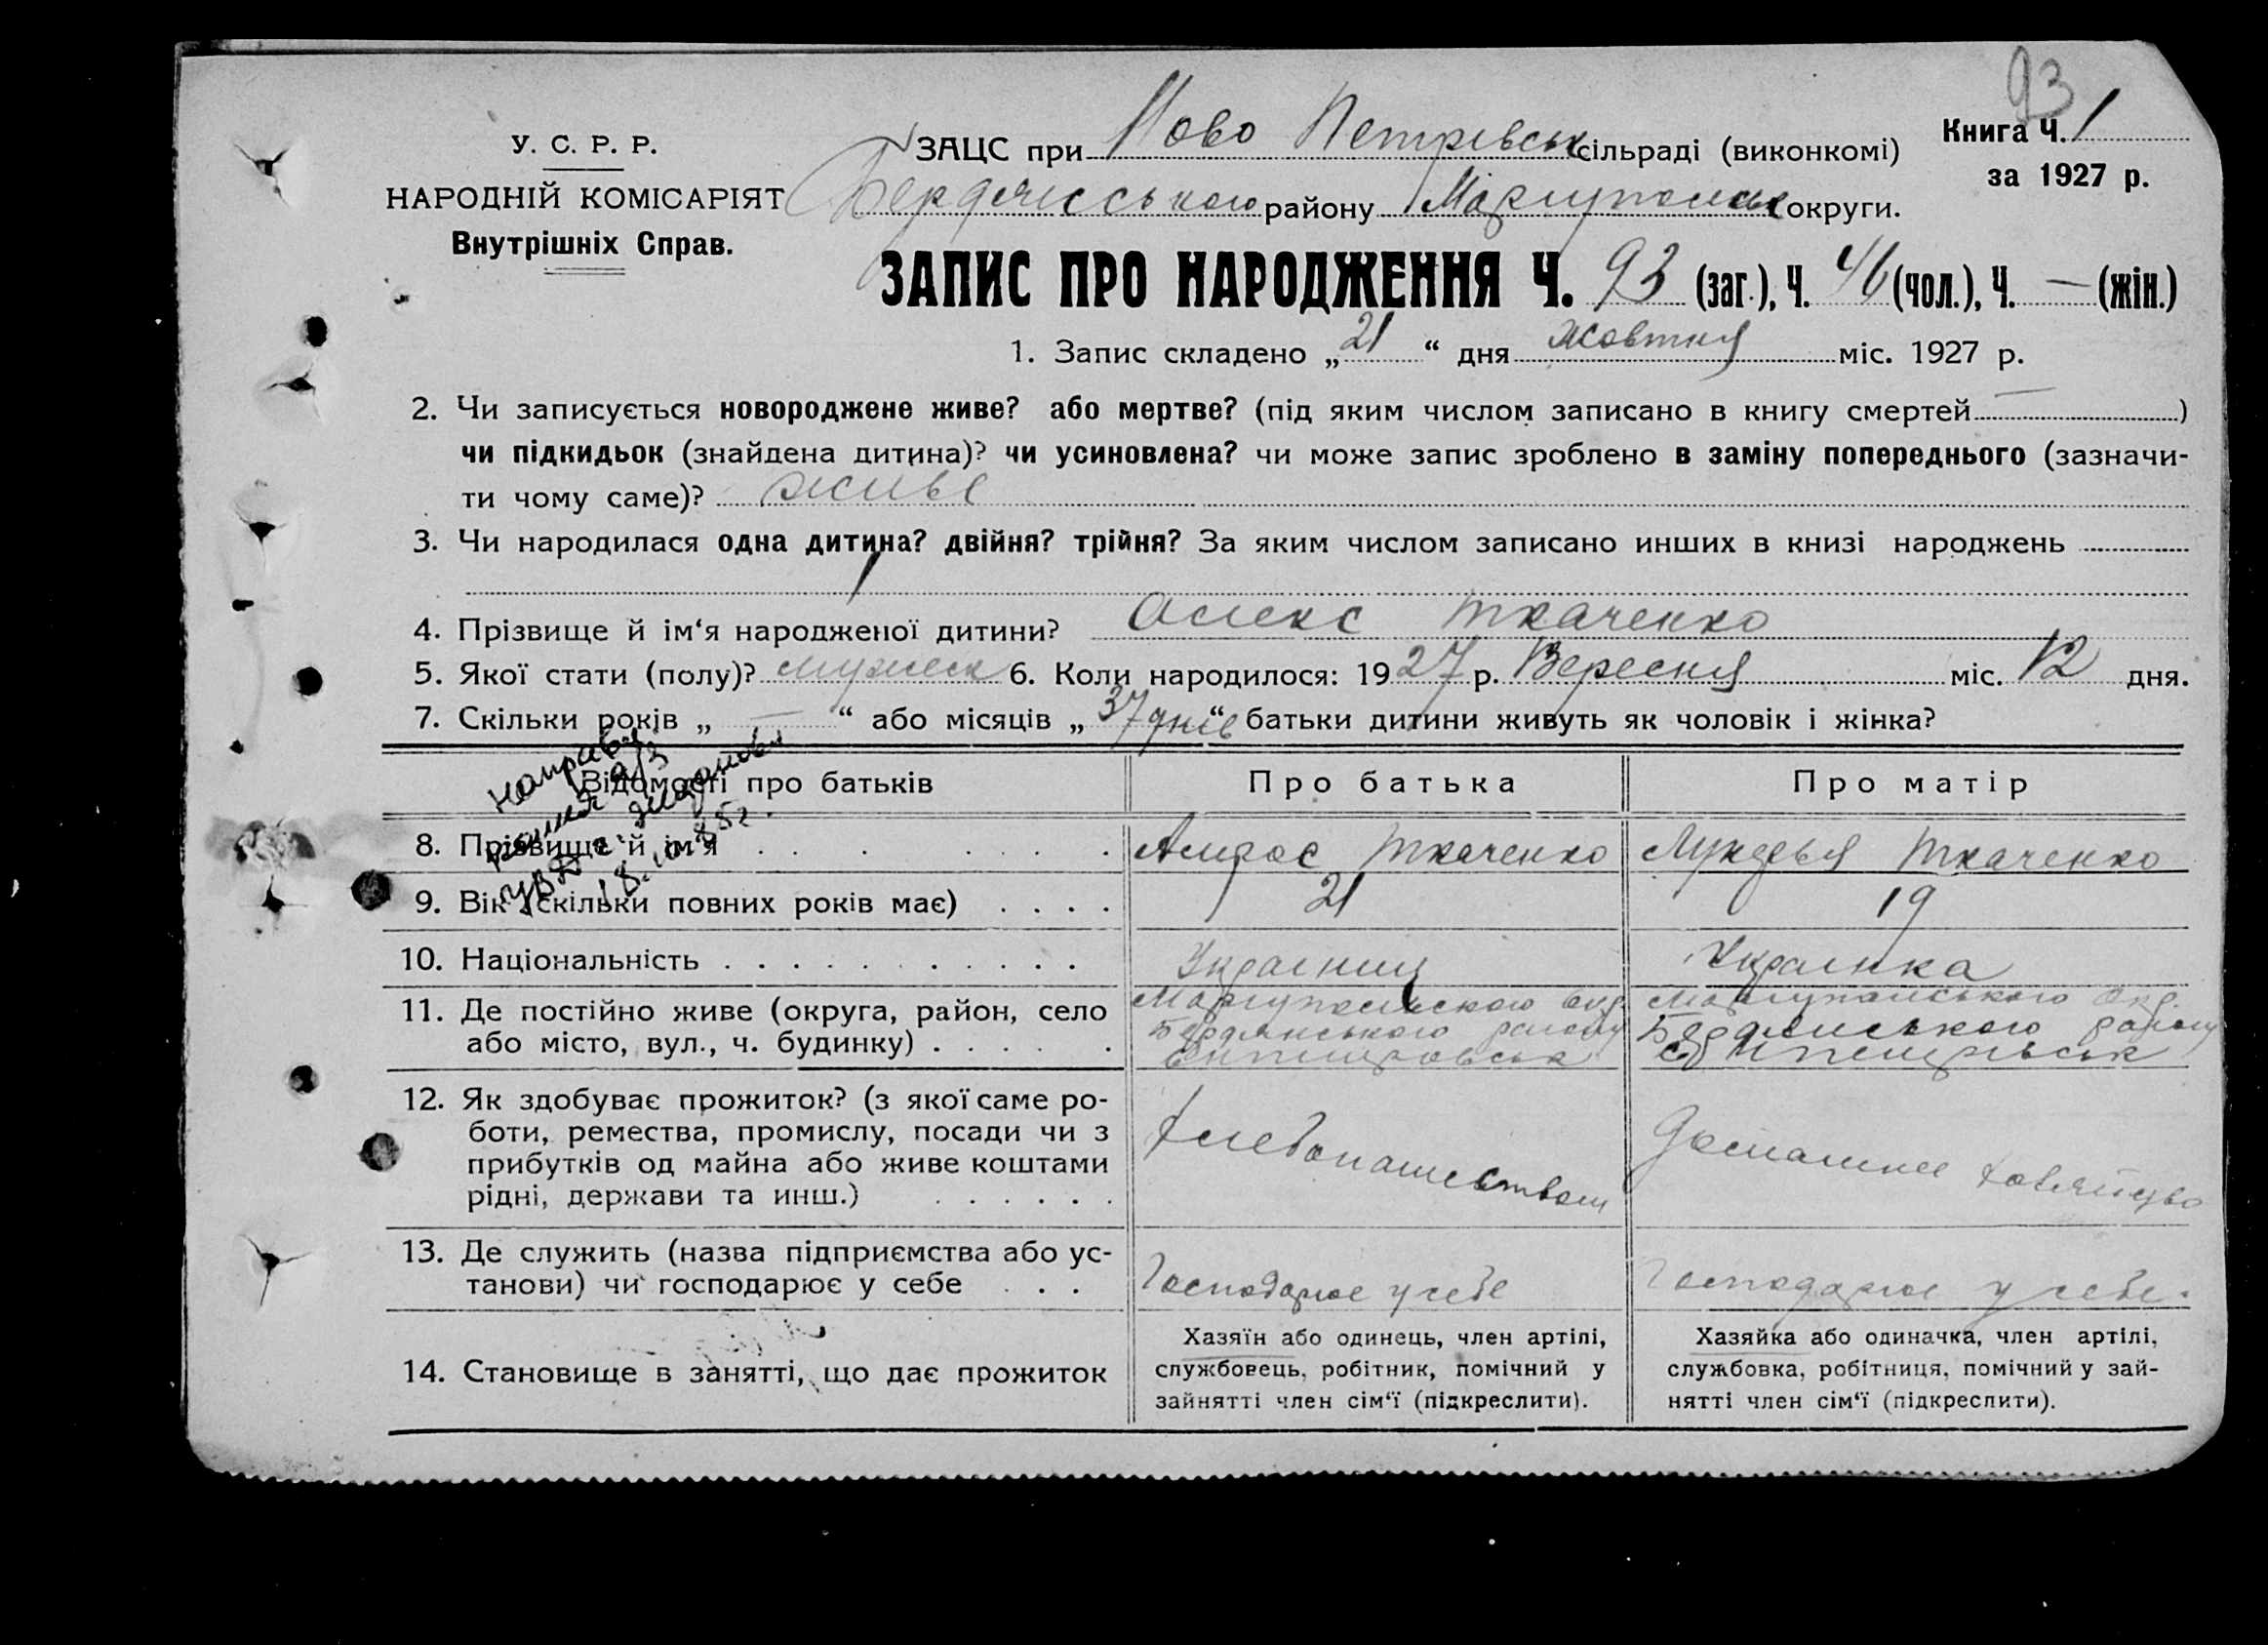 93
У. С. Р. Р.
НАРОДНІЙ КОМІСАРІЯТ
Внутрішніх Справ.
ЗАЦС при Ново Петрівськ сільраді (виконкомі)
Бердянсського району Маріупольськ округи.
Книга Ч. 1
за 1927 р.
ЗАПИС ПРО НАРОДЖЕННЯ Ч. 93 (заг.), Ч. 46 (чол.), Ч. — (жін.)
1. Запис складено „21“ дня жовтня міс. 1927 р.
2. Чи записується новороджене живе? або мертве? (під яким числом записано в книгу смертей — )
чи підкидьок (знайдена дитина)? чи усиновлена? чи може запис зроблено в заміну попереднього (зазначи-
ти чому саме)? живе
3. Чи народилася одна дитина? двійня? трійня? За яким числом записано инших в книзі народжень
1
4. Прізвище й ім‘я народженої дитини? Алекс Ткаченко
5. Якої стати (полу)? мужеск 6. Коли народилося: 1927 р. Вересня міс. 12 дня.
7. Скільки років „ — “ або місяців „37 днів“ батьки дитини живуть як чоловік і жінка?
Відомості про батьків Про батька Про матір
8. Прізвище й ім‘я Ткаченко Лукерья Ткаченко
9. Вік (скільки повних років має) 21 19
10. Національність Украинец Украинка
11. Де постійно живе (округа, район, село
або місто, вул., ч. будинку)
Мариупольского окр.
Бердянського району
Маріупольського окр.
Бердянського району
12. Як здобуває прожиток? (з якої саме ро-
боти, ремества, промислу, посади чи з
прибутків од майна або живе коштами
рідні, держави та инш.)
Хлебопашеством
Домашнее
13. Де служить (назва підприємства або ус-
танови) чи господарює у себе
Господарює у себе
Господарює у себе.
14. Становище в занятті, що дає прожиток
Хазяїн або одинець, член артілі,
службовець, робітник, помічний у
зайнятті член сім‘ї (підкреслити).
Хазяйка або одиначка, член артілі,
службовка, робітниця, помічний у зай-
нятті член сім‘ї (підкреслити).